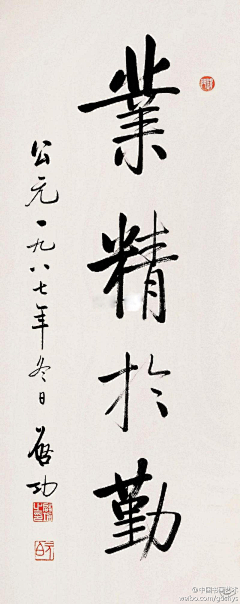 業精於勤
公元一九八七年冬日
啓功
@中国书画艺术